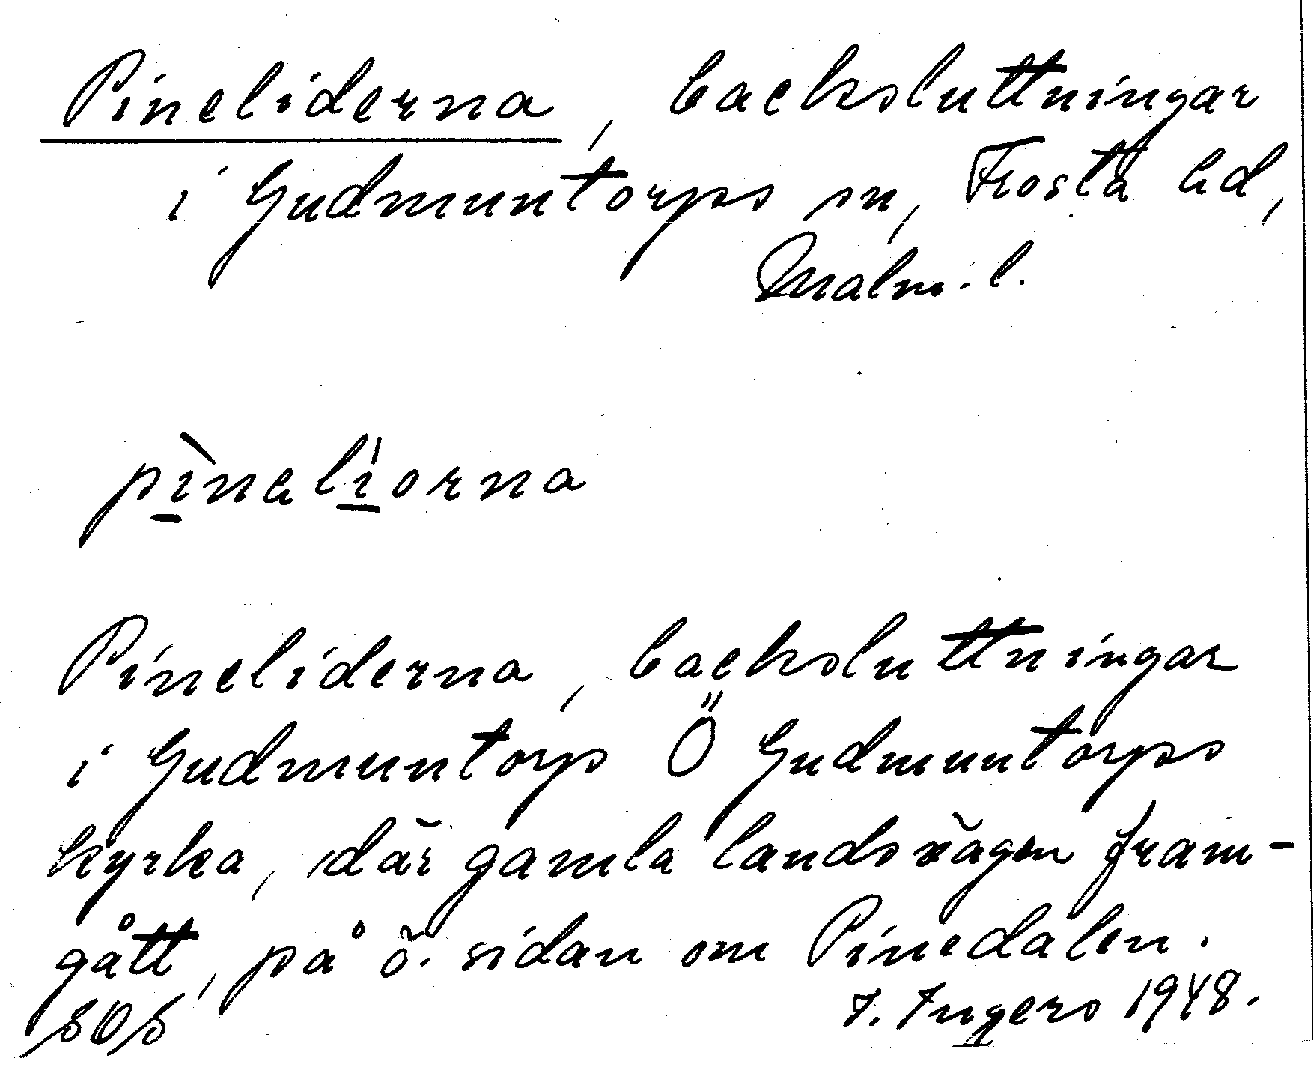 Pineliderna, backsluttningar
i Gudmuntorps sn, Frosta hd,
Malm. l.
pìnalíorna
Pineliderna, backsluttningar
i Gudmuntorps Ö Gudmuntorps
kyrka, där gamla landsvägen fram-
gått, på ö. sidan om Pinedalen.
SOS I. Ingers 1948.